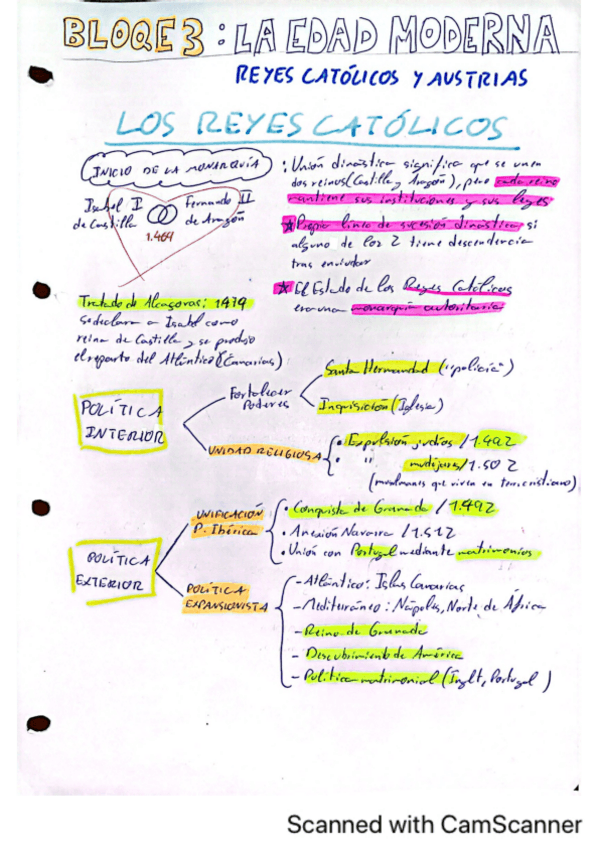 BLOQE 3 : LA EDAD MODERNA
REYES CATÓLICOS Y AUSTRIAS
LOS REYES CATÓLICOS
INICIO DE LA MONARQUÍA
Isabel I
de Castilla
Fernando II
de Aragón
1.469
: Unión dinástica significa que se unen
dos reinos (Castilla y Aragón), pero cada reino
mantiene sus instituciones y sus leyes
Propia línea de sucesión dinástica si
alguno de los 2 tiene descendencia
tras enviudar
El Estado de los Reyes Católicos
era una monarquía autoritaria
Tratado de Alcaçovas: 1479
Se declara a Isabel como
reina de Castilla y se produjo
el reparto del Atlántico (Canarias)
POLÍTICA
INTERIOR
Fortalecer
Poderes
Santa Hermandad ("policía")
Inquisición (Iglesia)
UNIDAD RELIGIOSA
• Expulsión judíos / 1.492
• " mudéjares / 1.502
(musulmanes que viven en terr. cristiano)
POLÍTICA
EXTERIOR
UNIFICACIÓN
P. Ibérica
• Conquista de Granada / 1.492
• Anexión Navarra / 1.512
• Unión con Portugal mediante matrimonios
POLÍTICA
EXPANSIONISTA
- Atlántico: Islas Canarias
- Mediterráneo: Nápoles, Norte de África
- Reino de Granada
- Descubrimiento de América
- Política matrimonial (Inglt, Portugal)
Scanned with CamScanner